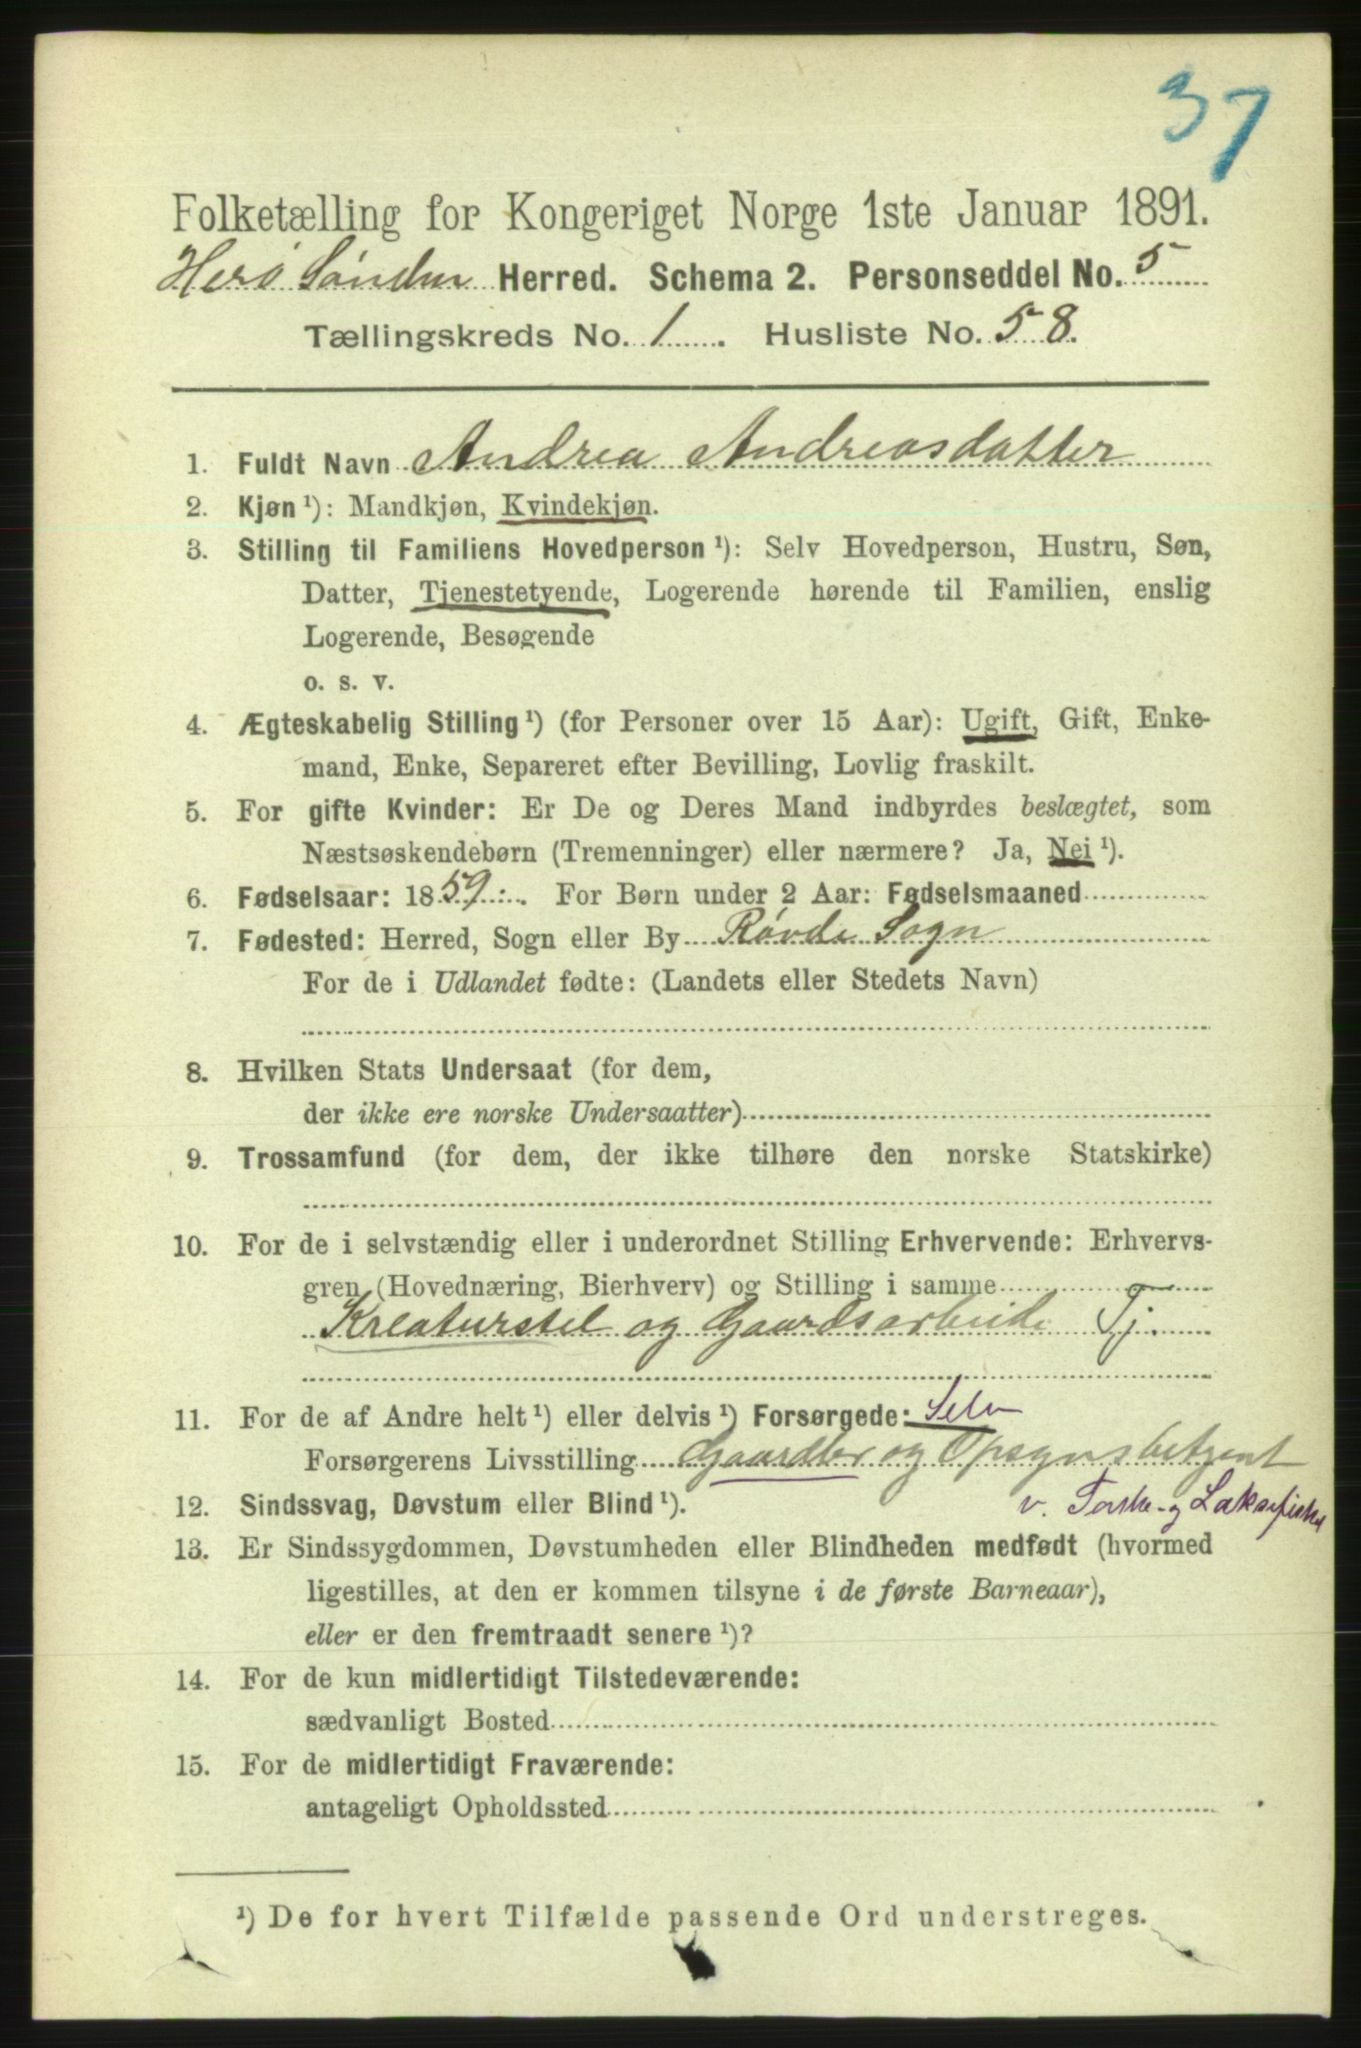 37
Folketælling for Kongeriget Norge 1ste Januar 1891.
Herø Søndm Herred. Schema 2. Personseddel No. 5
Tællingskreds No. 1. Husliste No. 58.
1. Fuldt Navn Andrea Andreasdatter
2. Kjøn ¹): Mandkjøn, Kvindekjøn.
3. Stilling til Familiens Hovedperson ¹): Selv Hovedperson, Hustru, Søn,
Datter, Tjenestetyende, Logerende hørende til Familien, enslig
Logerende, Besøgende
o. s. v.
4. Ægteskabelig Stilling ¹) (for Personer over 15 Aar): Ugift, Gift, Enke-
mand, Enke, Separeret efter Bevilling, Lovlig fraskilt.
5. For gifte Kvinder: Er De og Deres Mand indbyrdes beslægtet, som
Næstsøskendebørn (Tremenninger) eller nærmere? Ja, Nei ¹).
6. Fødselsaar: 1859. For Børn under 2 Aar: Fødselsmaaned
7. Fødested: Herred, Sogn eller By Røvde Sogn
For de i Udlandet fødte: (Landets eller Stedets Navn)
8. Hvilken Stats Undersaat (for dem,
der ikke ere norske Undersaatter)
9. Trossamfund (for dem, der ikke tilhøre den norske Statskirke)
10. For de i selvstændig eller i underordnet Stilling Erhvervende: Erhvervs-
gren (Hovednæring, Bierhverv) og Stilling i samme
Kreaturstel og Gaardsarbeide Tj.
11. For de af Andre helt ¹) eller delvis ¹) Forsørgede: Selv
Forsørgerens Livsstilling Gaardbr og Opsynsbetjent
12. Sindssvag, Døvstum eller Blind ¹). v. Torske- og Laksefisket
13. Er Sindssygdommen, Døvstumheden eller Blindheden medfødt (hvormed
ligestilles, at den er kommen tilsyne i de første Barneaar),
eller er den fremtraadt senere ¹)?
14. For de kun midlertidigt Tilstedeværende:
sædvanligt Bosted
15. For de midlertidigt Fraværende:
antageligt Opholdssted
¹) De for hvert Tilfælde passende Ord understreges.